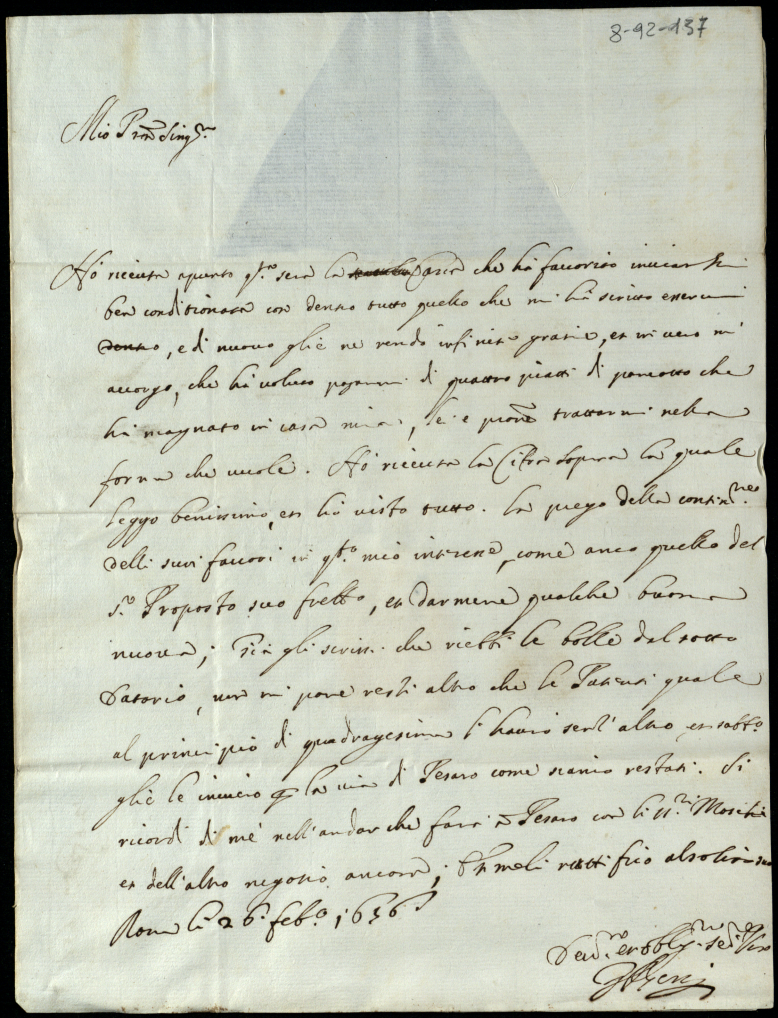 8-92-137
Mio Pron Sing.re
Hò riceuta apunto q.ta sera la che hà fauorito inuiarmi
ben conditionata con dentro tutto quello che mi hà scritto esserui
dentro, e di nuouo gliè ne rendo infinite gratie, et in vero m'
accorgo, che hà voluto pagarmi di quattro piatti di pancotto che
hà magnato in casa mia, lei è trattarmi nella
forma che vuole. Hò riceuta la Cifra la quale
leggo benissimo, et hò visto tutto. La prego della contin.ne
delli suoi fauori in q.to mio interesse, come anco quello del
S.r Proposto suo frello, et darmene qualche buona
nuoua; già gli scrissi che riebbi le bolle dal sotto
Datario, non mi pare resti altro che le Patenti quale
al principio di quadragesima li hauró senz'altro, et subb.o
gliè le inuierò p la via di Pesaro come siamo restati. Si
ricordi di mè nell'andar che farà à Pesaro con li SS.ri
et dell'altro negotio ancora; et meli ratifico al solito suo
Roma li 26 feb.o 1636
Deu.mo et obblig.mo